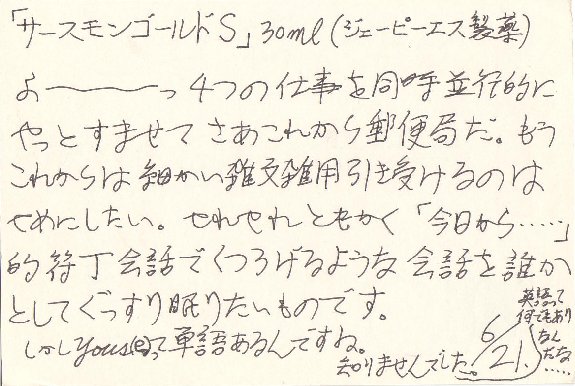 「サースモンゴールドS」30ml(ジェーピーエス製薬)
よ〜〜〜っ4つの仕事を同時並行的に
やっとすませてさあこれから郵便局だ。もう
これからは細かい雑文雑用引き受けるのは
やめにしたい。やれやれともかく「今日から……」
的符丁会話でくつろげるような会話を誰か
としてぐっすり眠りたいものです。
しかしyouseって単語あるんですね。
知りませんでした。
6/21.
英語って
何でもあり
なん
だな……